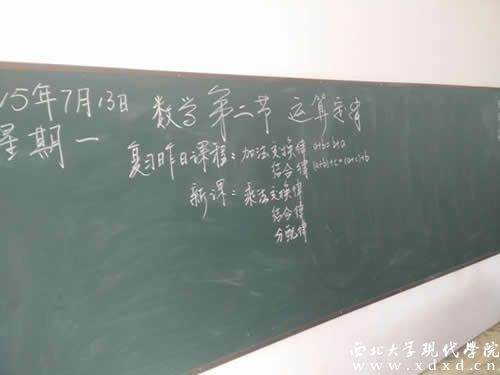 15年7月13日 数学 第二节 运算定律
星期一
复习昨日课程：加法交换律 a+b=b+a
结合律 (a+b)+c=(a+c)+b
新课：乘法交换律
结合律
分配律
西北大学现代学院
www.xdxd.cn